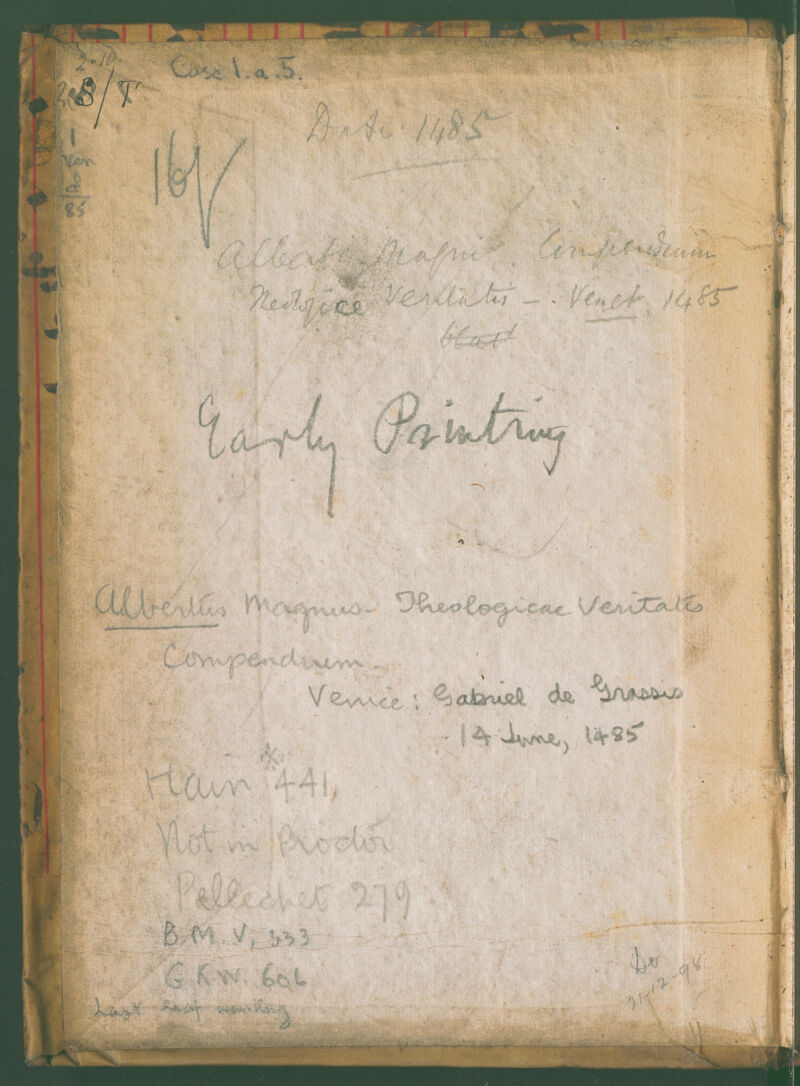 2-10
Case 1.a.5.
B/T
Date 1485
16/
1
Ven
85
Alberti Magni Compendium
Theologice Veritatis - Venet. 1485
Early Printing
Albertus Magnus - Theologicae Veritatis
Compendium.
Venice: Gabriel de Grassis
14 June, 1485
Hain *441.
Not in Proctor
Pellechet 279
B.M. V, 333
G.K.W. 606
Last leaf wanting
21-12-98